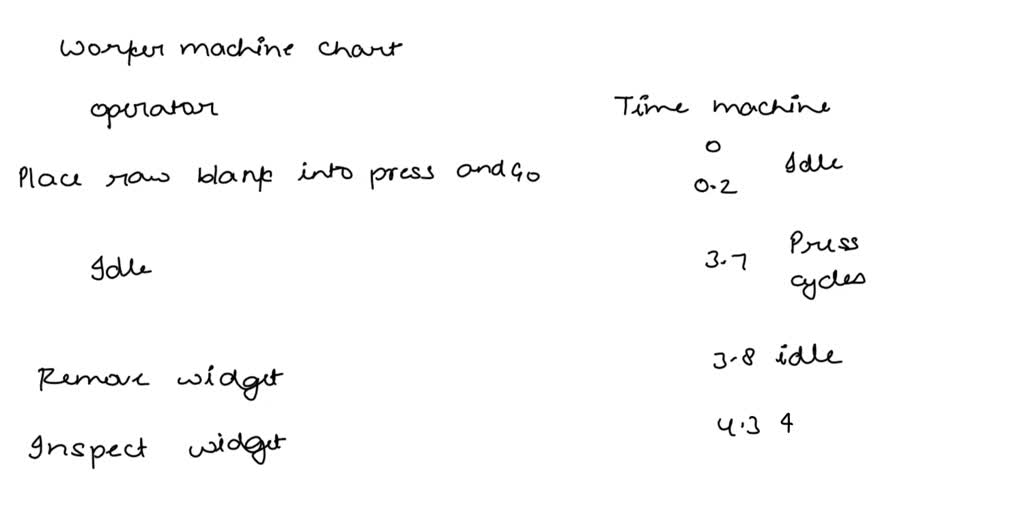 Worker machine chart
operator Time machine
0
Place raw blank into press and Go 0.2 Idle
Idle 3.7 Press cycles
Remove widget 3.8 idle
Inspect widget 4.3 4